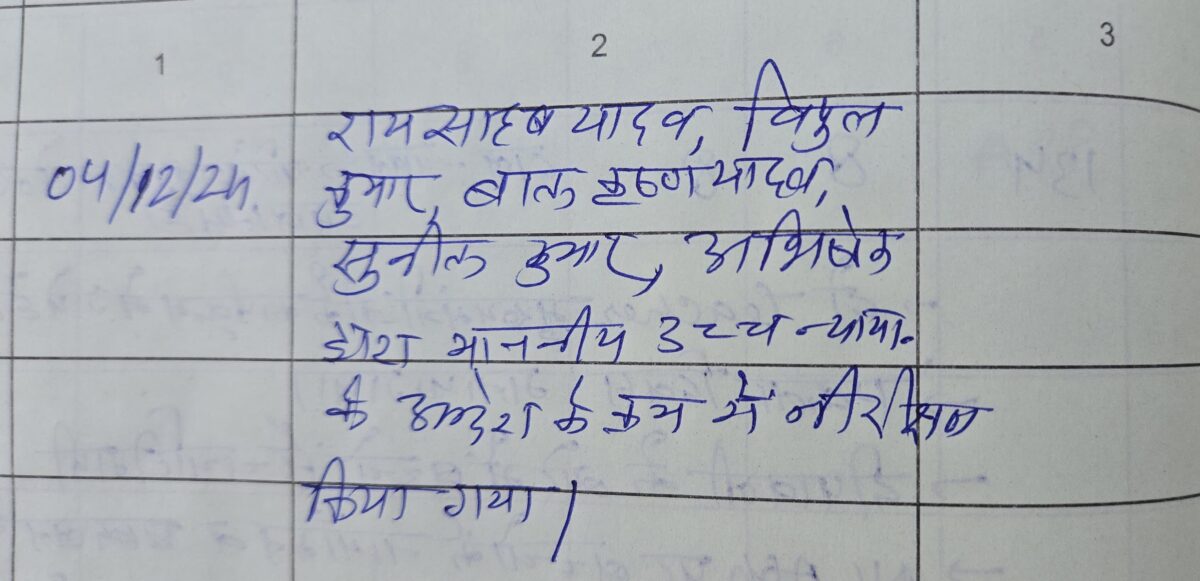 1 2 3
04/12/24. रायसाहब यादव, विपुल
कुमार, बाल कृष्ण यादव,
सुनील कुमार, अभिषेक
द्वारा माननीय उच्च न्याया.
के आदेश के क्रम में नीरीक्षन
किया गया।